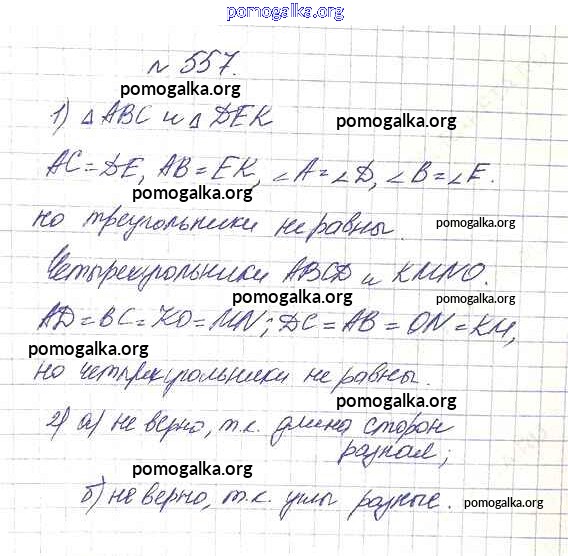 pomogalka.org
№ 557.
pomogalka.org
1) △ ABC и △ DEK
pomogalka.org
AC = DE, AB = EK, ∠A = ∠D, ∠B = ∠E.
pomogalka.org
но треугольники не равны.
pomogalka.org
Четырехугольники ABCD и KMNO.
pomogalka.org
pomogalka.org
AD = BC = KO = MN; DC = AB = ON = KM,
pomogalka.org
но четырехугольники не равны.
pomogalka.org
2) а) не верно, т.к. длина сторон
разная;
pomogalka.org
б) не верно, т.к. углы разные.
pomogalka.org